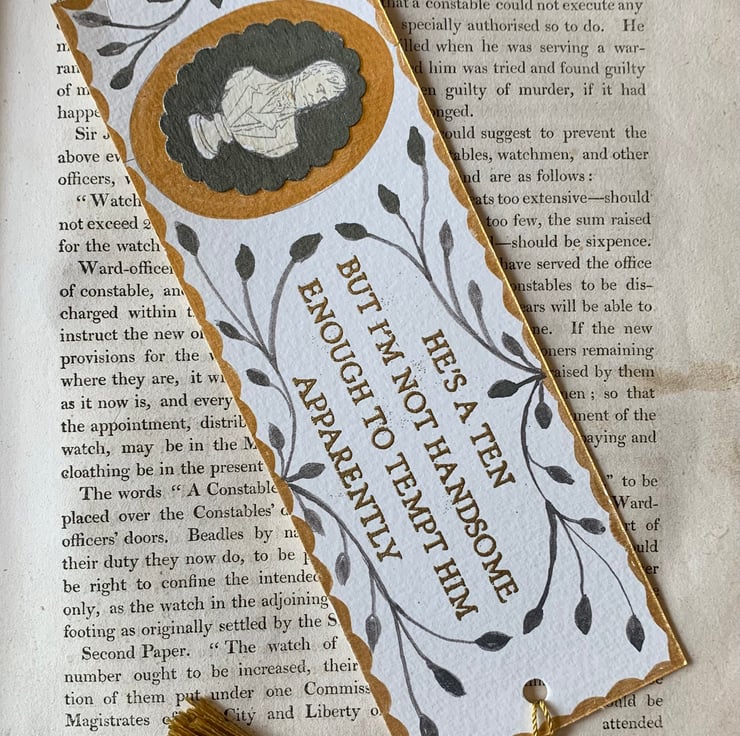 of m
happe
Sir
above ev
officers,
"Watch
not exceed 2
for the watch
Ward-officer
of constable, an
charged within t
instruct the new o
provisions for the
where they are, it w
as it now is, and every
the appointment, distrib
watch, may be in the M
cloathing be in the present
The words "A Constable
placed over the Constables'
officers' doors. Beadles by na
their duty they now do, to be
be right to confine the intended
only, as the watch in the adjoining
footing as originally settled by the S
Second Paper. "The watch of
number ought to be increased, their
tion of them put under one Commis
Magistrates City and Liberty o
HE'S A TEN
BUT I'M NOT HANDSOME
ENOUGH TO TEMPT HIM
APPARENTLY
that a constable could not execute any
specially authorised so to do. He
lled when he was serving a war-
d him was tried and found guilty
en guilty of murder, if it had
nged.
ould suggest to prevent the
ables, watchmen, and other
nd are as follows:
ats too extensive—should
too few, the sum raised
—should be sixpence.
have served the office
onstables to be dis-
ars will be able to
ne. If the new
oners remaining
raised by them
en; so that
ment of the
paying and
" to be
Ward-
rt of
uld
er
uld be
attended